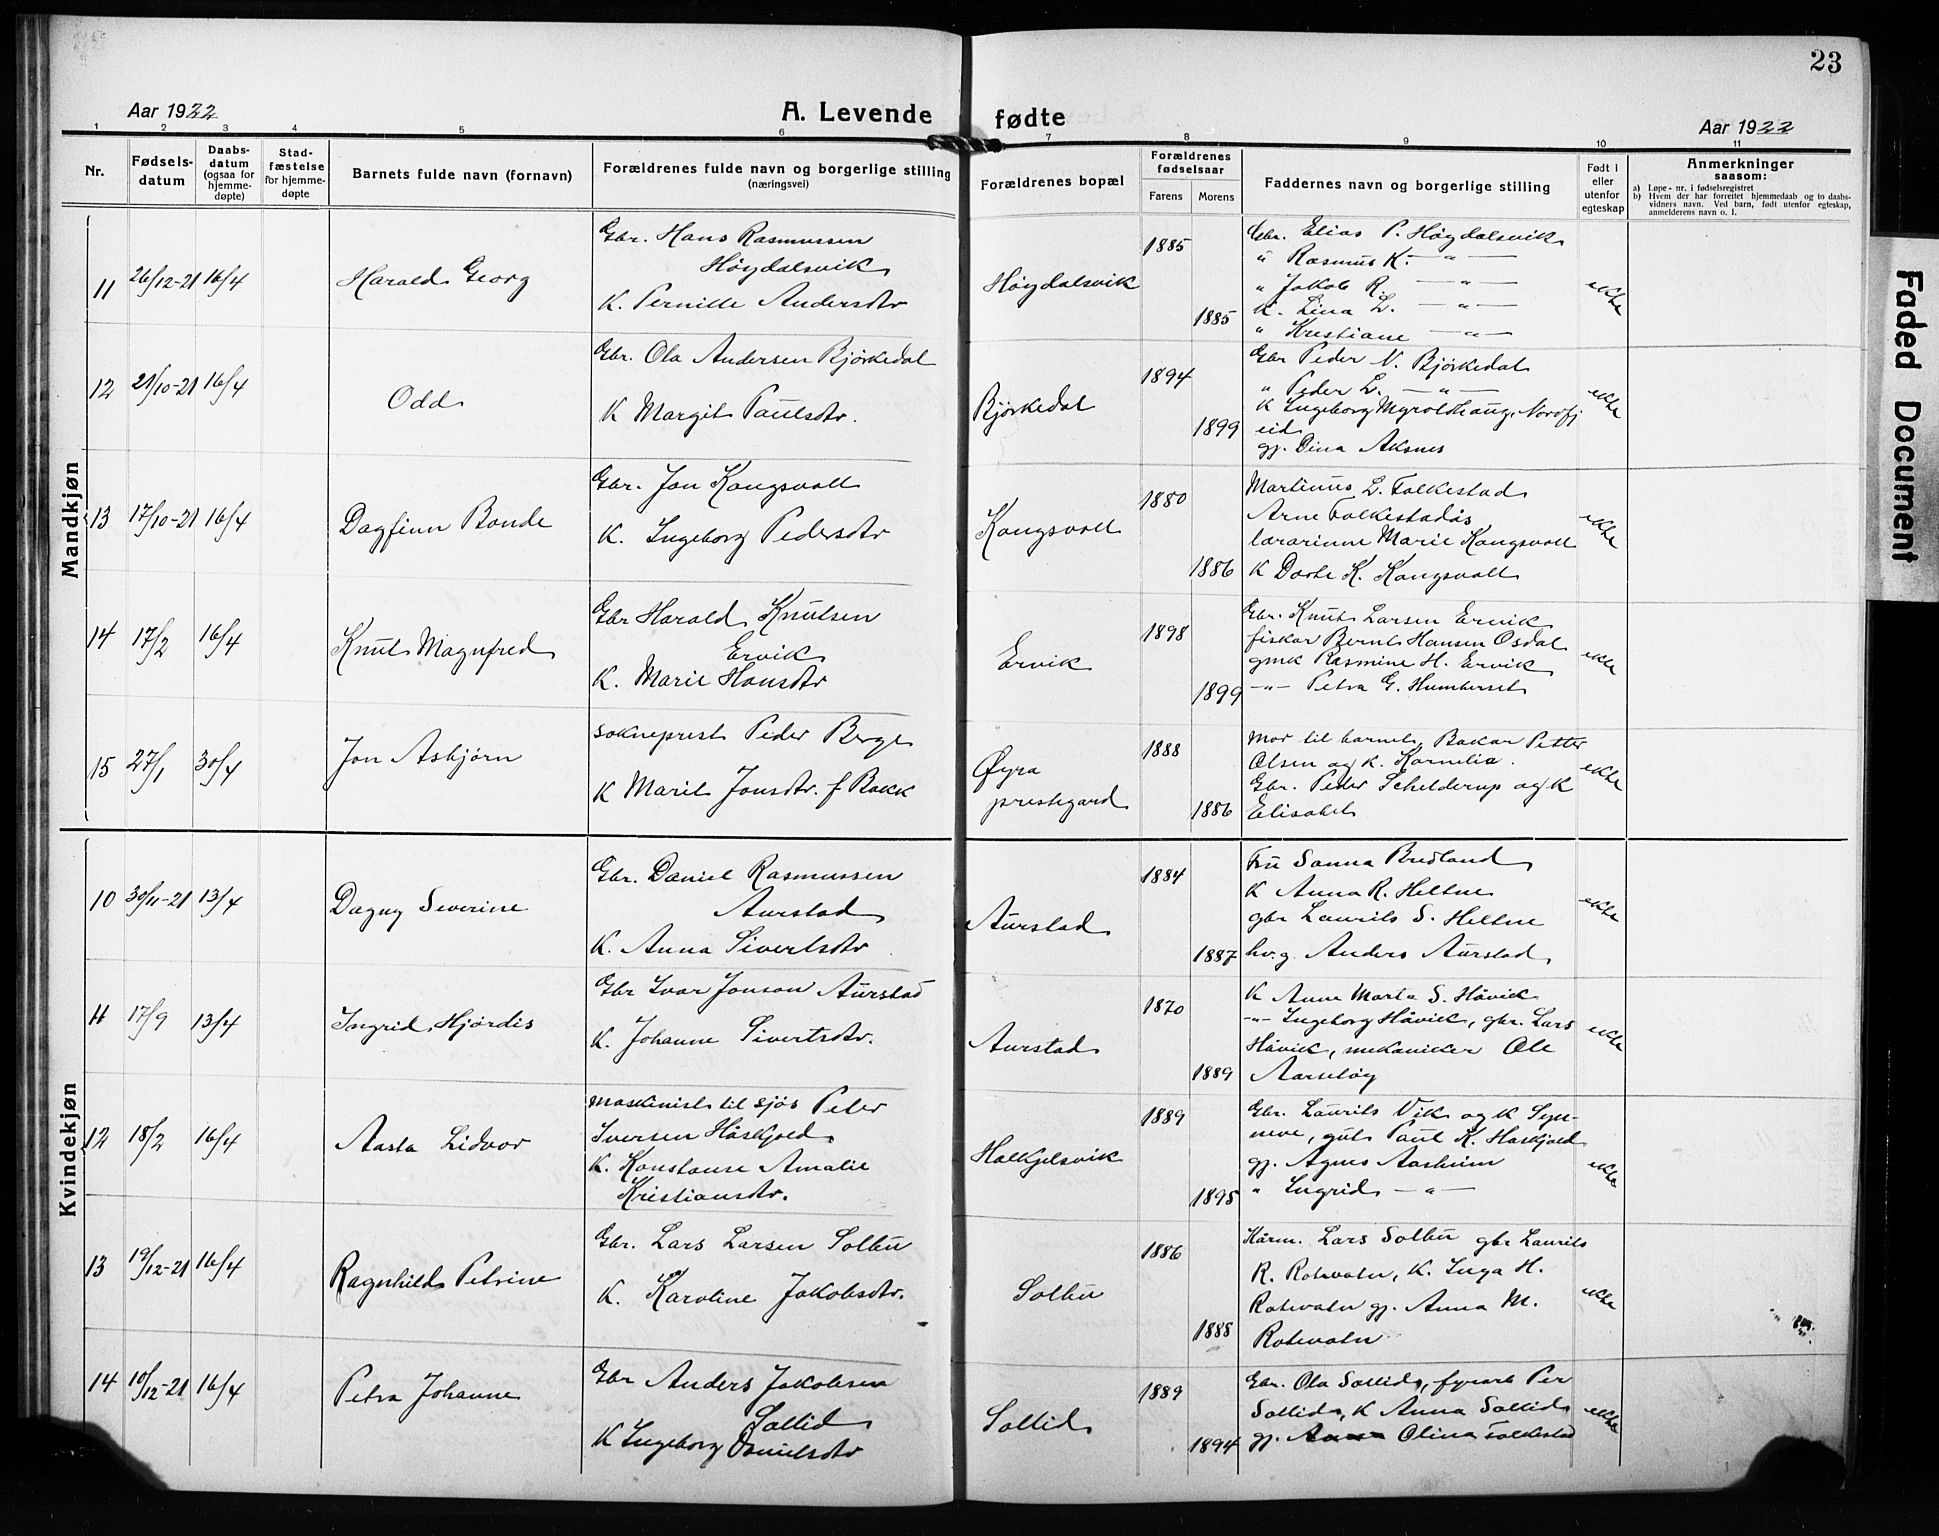 23
Aar 1922
A. Levende fødte
Aar 1922
1 2 3 4 5 6 7 8 9 10 11
Nr.
Fødsels-
datum
Daabs-
datum
(ogsaa for
hjemme-
døpte)
Stad-
fæstelse
for hjemme-
døpte
Barnets fulde navn (fornavn)
Forældrenes fulde navn og borgerlige stilling
(næringsvei)
Forældrenes bopæl
Forældrenes
fødselsaar
Farens Morens
Faddernes navn og borgerlige stilling
Født i
eller
utenfor
egteskap
Anmerkninger
saasom:
a) Løpe-nr. i fødselsregistret
b) Hvem der har forrettet hjemmedaab og to daabs-
vidners navn. Ved barn, født utenfor egteskap,
anmelderens navn o. l.
Mandkjøn
11 26/12-21 16/4 Harald Georg
Gbr. Hans Rasmussen
Høydalsvik
K. Pernille Andersdtr
Høydalsvik
1885
1885
Gbr. Elias P. Høydalsvik
" Rasmus K. — " —
" Jakob R. — " —
K. Lina L. — " —
" Kristiane — " —
ekte
12 21/10-21 16/4 Odd
Gbr. Ola Andersen Bjørkedal
K Margit Paulsdtr.
Bjørkedal
1894
1899
Gbr Peder N. Bjørkedal
" Peder L. — " —
K Ingeborg Myroldhaug, Nordfj
eid
gj. Dina Aksnes
ekte
13 17/10-21 16/4 Dagfinn Bonde
Gbr. Jon Kongsvoll
K. Ingeborg Pedersdtr
Kongsvoll
1880
1886
Martinus L. Folkestad
Arne Folkestadås
lærarinne Marie Kongsvoll
K Dorte K. Kongsvoll
ekte
14 17/2 16/4 Knut Magnfred
Gbr Harald Knutsen
Ervik
K. Marie Hansdtr
Ervik
1898
1899
Gbr. Knut Larsen Ervik
fiskar Bernt Hansen Osdal
gmk Rasmine H. Ervik
—"— Petra G. Humberset
ekte
15 27/1 30/4 Jon Asbjørn
sokneprest Peder Berge
K Marit Jonsdtr. f Bakk
Øyra
prestegard
1888
1886
Mor til barnet, Bakar Petter
Olsen og K. Kornelia.
Gbr. Peder Schelderup og K
Elisabet
ekte
Kvindekjøn
10 30/11-21 13/4 Dagny Severine
Gbr. Daniel Rasmussen
Aurstad
K. Anna Sivertsdtr
Aurstad
1884
1887
Fru Sanna Bredland
K Anna R. Heltne
gbr Laurits S. Heltne
hv.g. Anders Aurstad
ekte
11 17/9 13/4 Ingrid Hjørdis
Gbr Ivar Jonson Aurstad
K. Johanne Sivertsdtr.
Aurstad
1870
1889
K Anne Marta S. Håvik
—"— Ingeborg Håvik, gbr. Lars
Håvik, mekanicker Ole
Aarseløy
ekte
12 18/2 16/4 Aasta Lidvor
Maskinist til sjøs Peter
Iversen Håskjold
K. Konstanse Amalie
Kristiansdtr.
Halkjelsvik
1889
1895
Gbr. Laurits Vik og K Syn-
neve, gut Paul K. Haskjold
gj. Agnes Aasheim
" Ingrid — " —
ekte
13 19/12-21 16/4 Ragnhild Petrine
Gbr. Lars Larsen Solbu
K. Karoline Jakobsdtr.
Solbu
1886
1888
Kårm. Lars Solbu gbr Laurits
R. Rotevatn, K. Inga H.
Rotevatn gj. Anna M.
Rotevatn
ekte
14 10/12-21 16/4 Petra Johanne
Gbr Anders Jakobsen
Sollid
K Ingeborg Danielsdtr
Sollid
1889
1894
Gbr. Ola Sollid, fyrarb Per
Sollid, K Anna Sollid
gj. Olina Folkestad
ekte
Faded Document